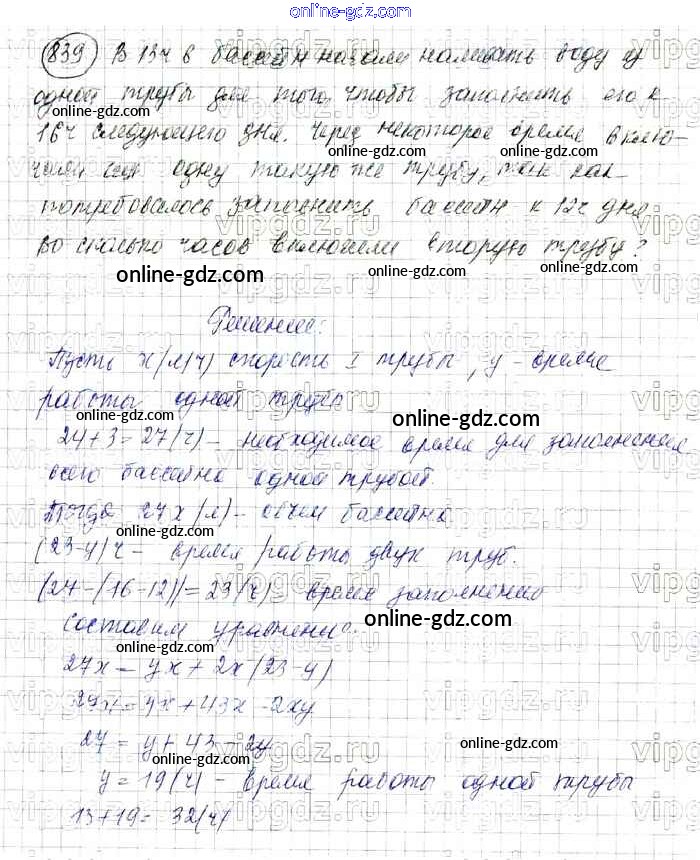 online-gdz.com
839 В 13ч в бассейн начали наливать воду из
одной трубы для того, чтобы заполнить его к
16ч следующего дня. Через некоторое время вклю-
чили еще одну такую же трубу, так как
потребовалось заполнить бассейн к 12ч дня.
Во сколько часов включили вторую трубу?
online-gdz.com
Решение:
Пусть x(л/ч) скорость I трубы, y - время
работы одной трубы
online-gdz.com
24+3=27(ч) - необходимое время для заполнения
всего бассейна одной трубой.
Тогда 27x(л) - объем бассейна
(23-y)ч - время работы двух труб.
(27-(16-12))=23(ч) время заполнения
online-gdz.com
Составим уравнение:
27x = yx + 2x(23-y)
27x = yx + 43x - 2xy
27 = y + 43 - 2y
y = 19(ч) - время работы одной трубы
13+19 = 32(ч)